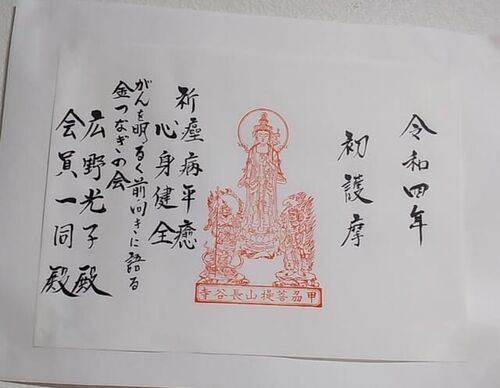 令和四年
初護摩
甲刕菩提山長谷寺
祈 癌病平癒
心身健全
がんを明るく前向きに語る
金つなぎの会
広野光子殿
会員一同殿